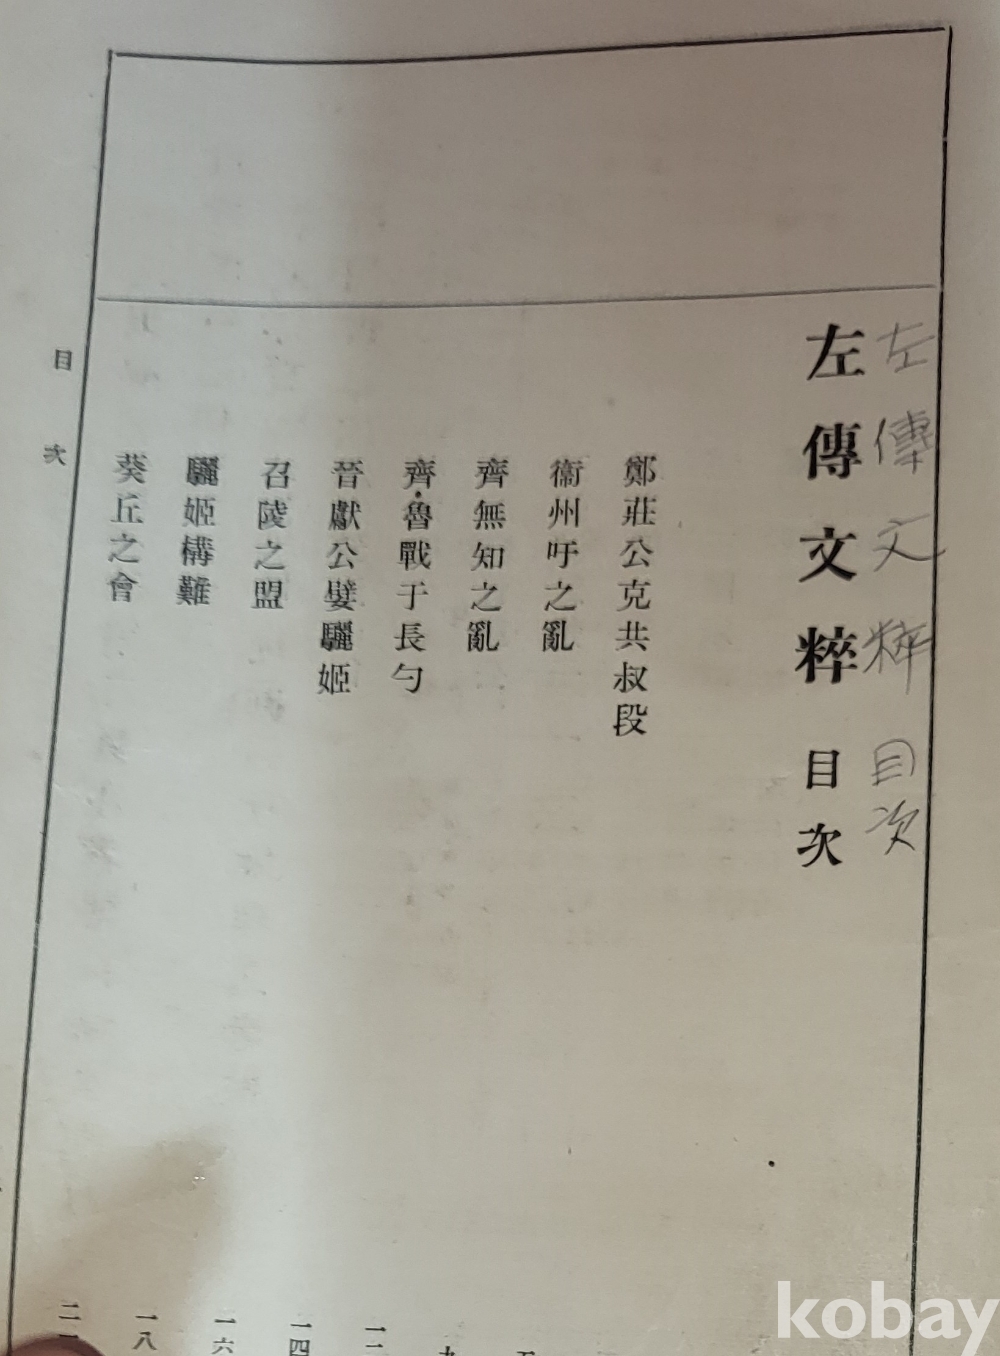 左傳文粹目次
左傳文粹 目次
鄭莊公克共叔段
衞州吁之亂
齊無知之亂
齊・魯戰于長勺
晉獻公嬖驪姬 一二
召陵之盟 一四
驪姬構難 一六
葵丘之會 一八
二一
目次
kobay